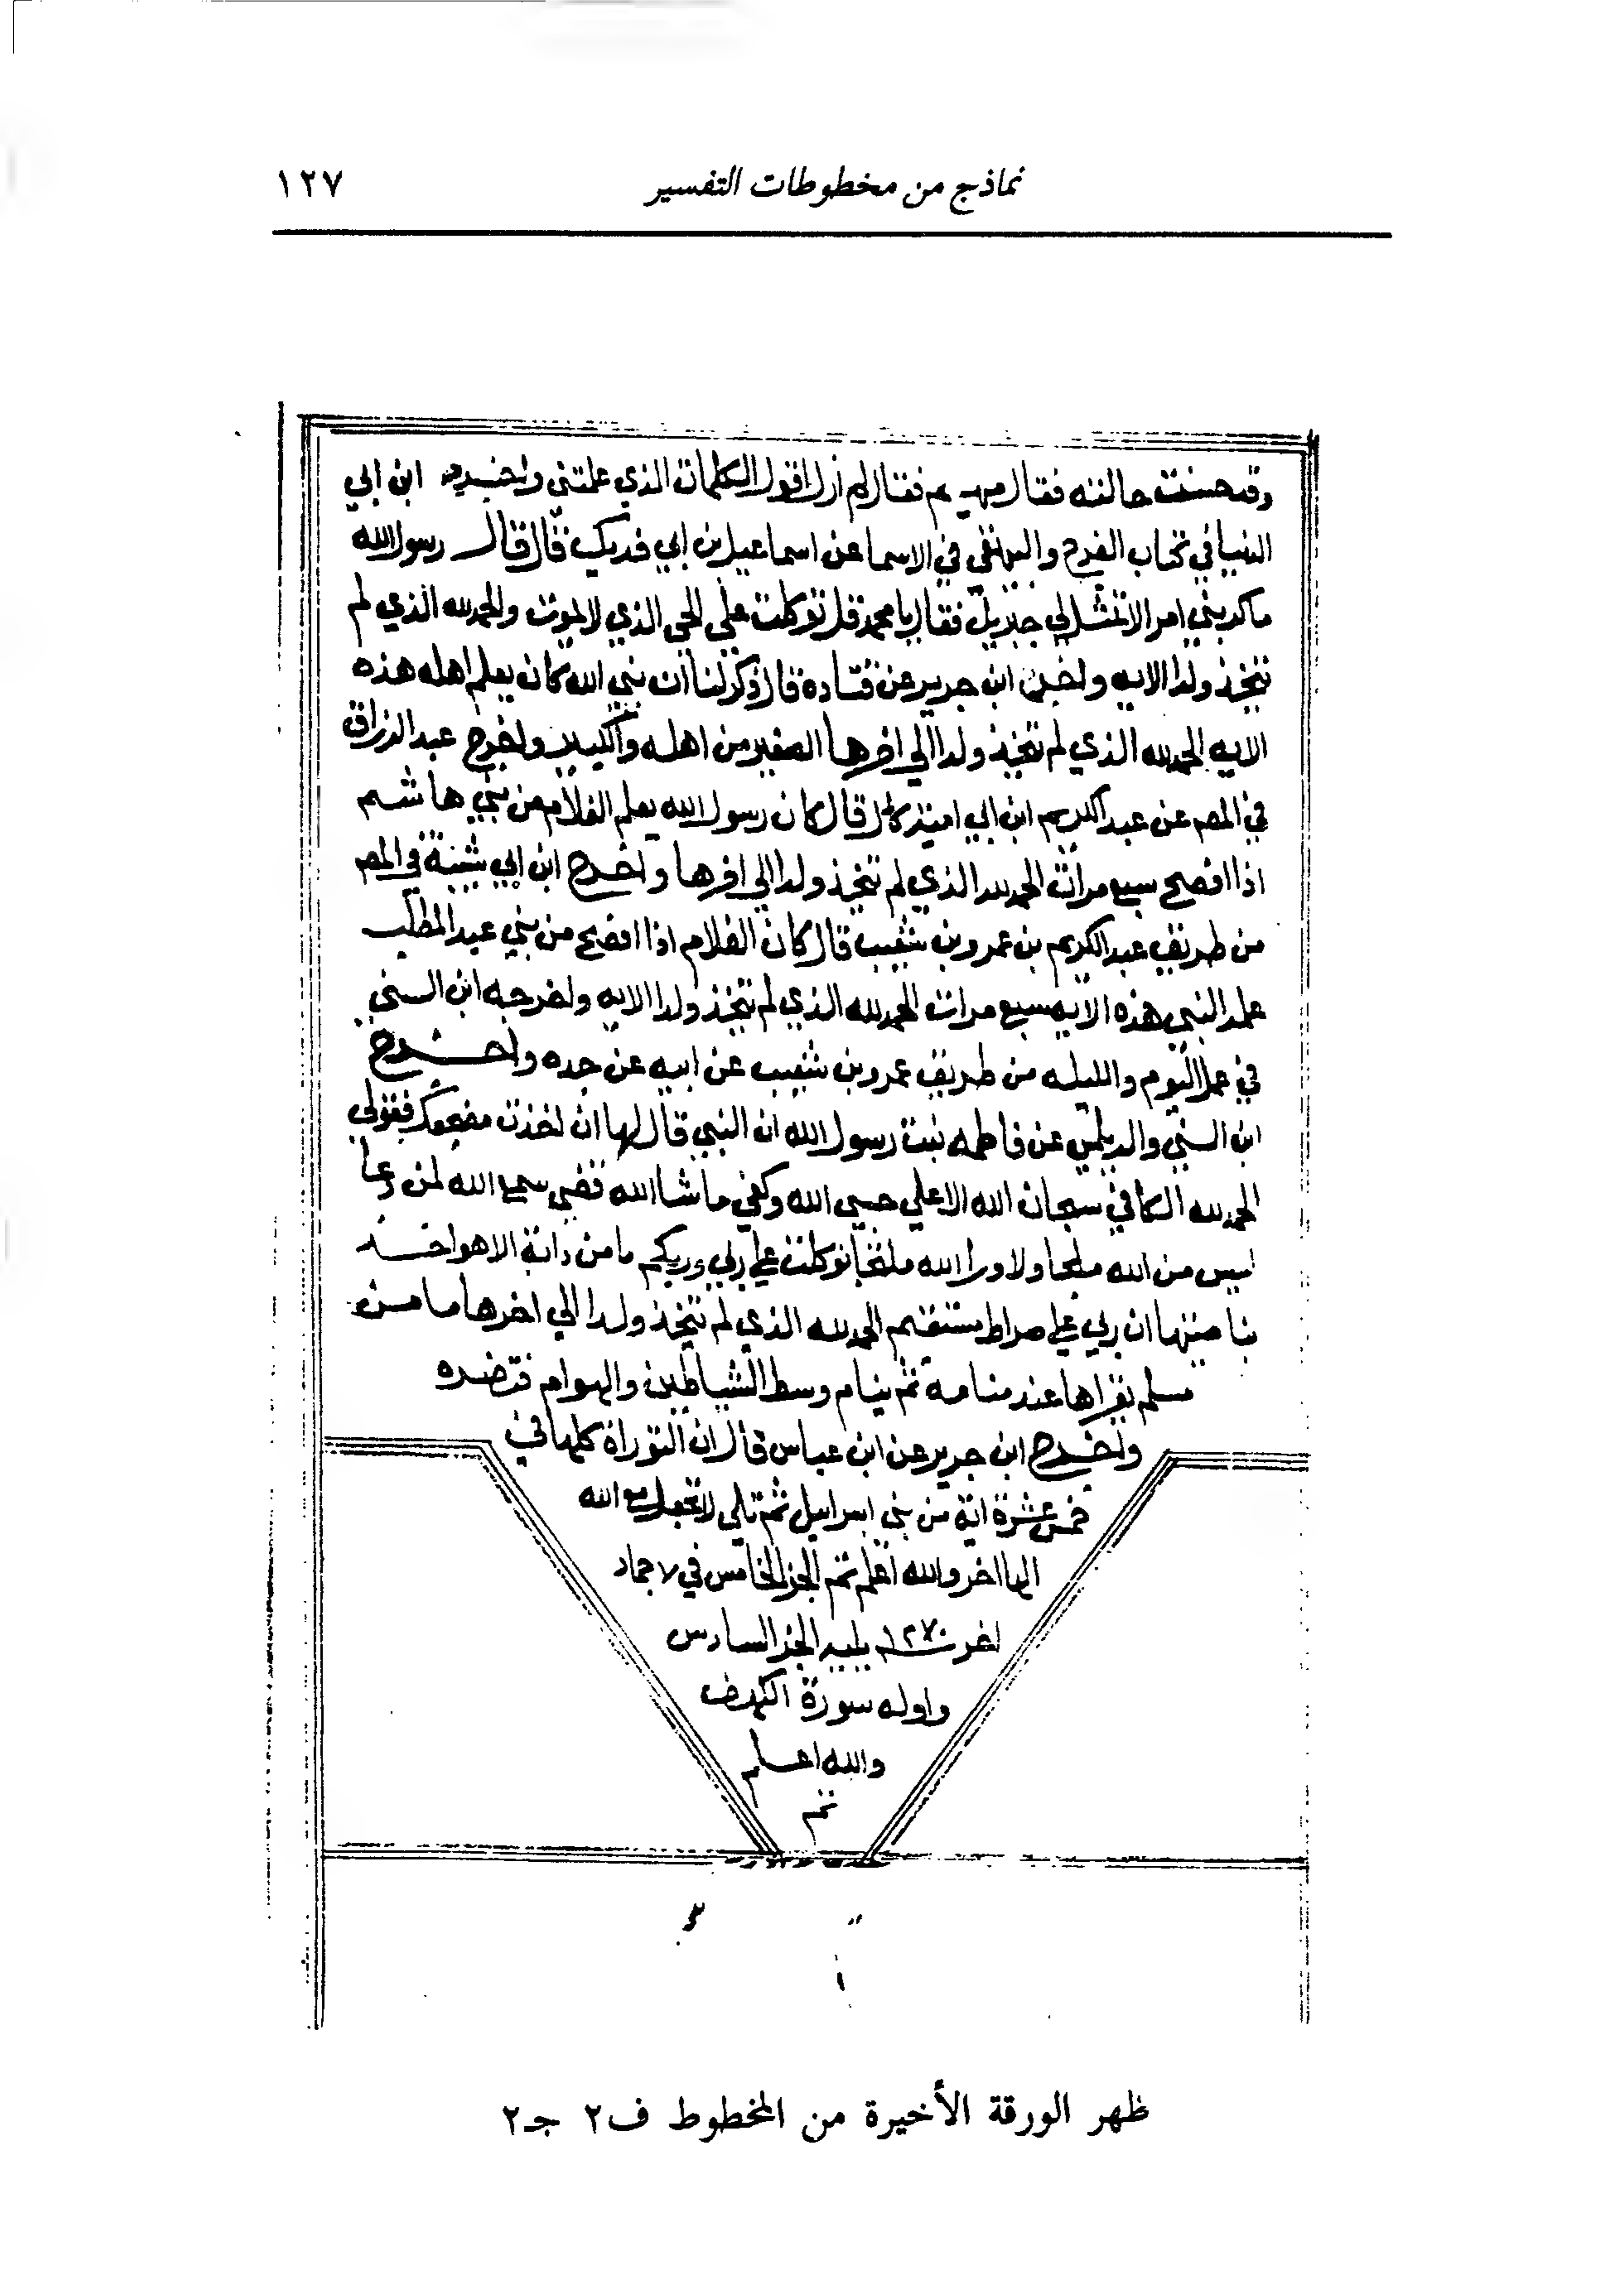 نماذج من مخطوطات التفسير ١٢٧
وقد حسنت حالته فقال مهيم فقال لم ازل اقول الكلمات الذي علمتني واخرج ابن ابي
الدنيا في كتاب الفرج والبيهقي في الاسما عن اسماعيل بن ابي فديك قال قال رسول الله
ما كربني امر الا تمثل لي جبريل فقال يا محمد قل توكلت علي الحي الذي لا يموت والحمد لله الذي لم
يتخذ ولدا الايه واخرج ابن جرير عن قتاده قال ذكر لنا ان نبي الله كان يعلم اهله هذه
الايه الحمد لله الذي لم يتخذ ولدا الي اخرها الصغير من اهله والكبير واخرج عبد الرزاق
في المص عن عبد الكريم ابن ابي اميه قال كان رسول الله يعلم الغلام من بني هاشم
اذا افصح سبع مرات الحمد لله الذي لم يتخذ ولدا الي اخرها واخرج ابن ابي شيبة في المص
من طريق عبد الكريم بن عمرو بن شعيب قال كان الغلام اذا افصح من بني عبد المطلب
علمه النبي هذه الايه سبع مرات الحمد لله الذي لم يتخذ ولدا الايه واخرجه ابن السني
في عمل اليوم والليله من طريق عمرو بن شعيب عن ابيه عن جده واخرج
ابن السني والديلمي عن فاطمه بنت رسول الله ان النبي قال لها ان اخذت مضجعك فقولي
الحمد لله الكافي سبحان الله الاعلي حسبي الله وكفي ما شا الله قضي سمع الله لمن دعا
ليس من الله ملجا ولا ورا الله ملتجا توكلت علي ربي وربكم ما من دابة الا هو اخذ
بناصيتها ان ربي علي صراط مستقيم الحمد لله الذي لم يتخذ ولدا الي اخرها ما من
مسلم يقراها عند منامه ثم ينام وسط الشياطين والهوام فتضره
واخرج ابن جرير عن ابن عباس قال ان التوراة كلها في
خمس عشرة اية من بني اسرايل ثم تلي لا تجعل مع الله
الها اخر والله اعلم تم الجز الخامس في ٧ جماد
اخر ١٢٧٠ يليه الجز السادس
واوله سورة الكهف
والله اعلم
تم
ظهر الورقة الأخيرة من المخطوط ف٢ جـ٢